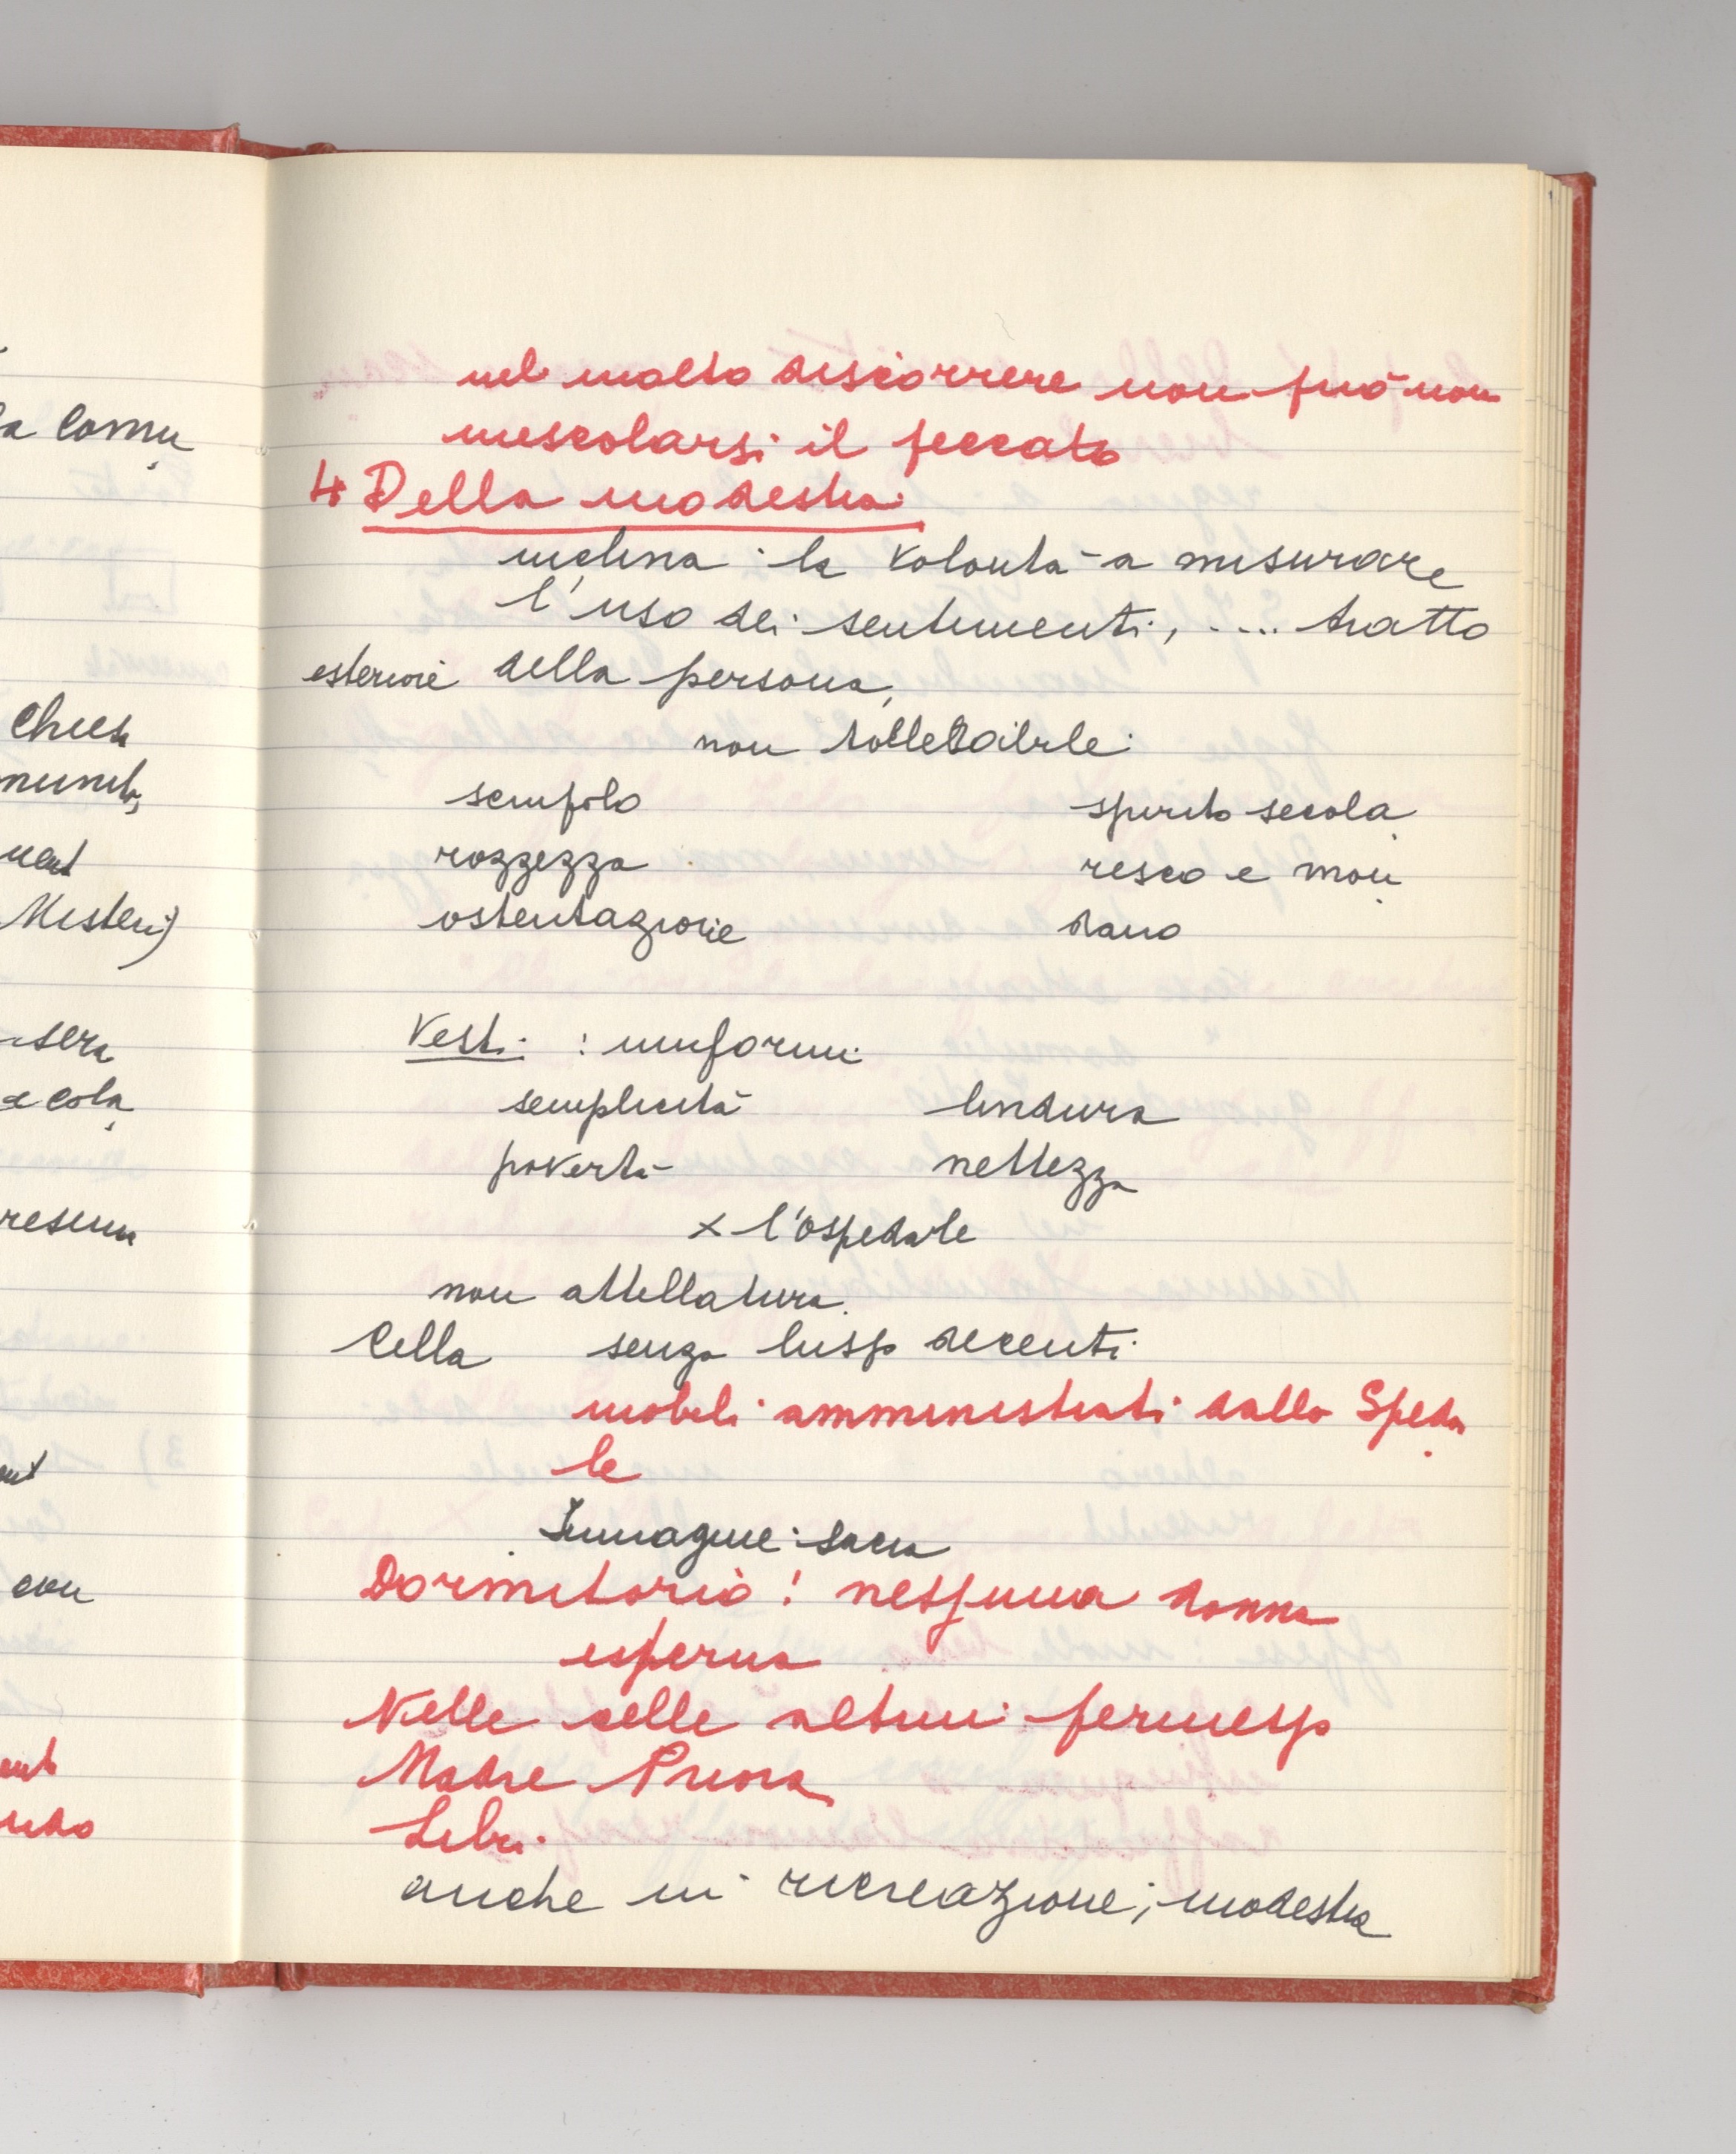 a comu
Misteri)
sera
e cola
resen
con
nel molto discorrere non può non
mescolarsi il peccato
4 Della modestia
inclina la volontà a misurare
l'uso dei sentimenti, .... tratto
esteriore della persona,
non
scempio spirito secola
rozzezza resco e mon
ostentazione dano
Vesti : uniformi
semplicità lindura
povertà nettezza
x l'ospedale
non attellatura.
Cella senza lusso decenti
mobili amministrati dallo Speda
le
Immagine sacra
Dormitorio : nessuna donna
esterna
Nelle celle altrui permesso
Madre Priora
Libri
anche in ricreazione; modestia